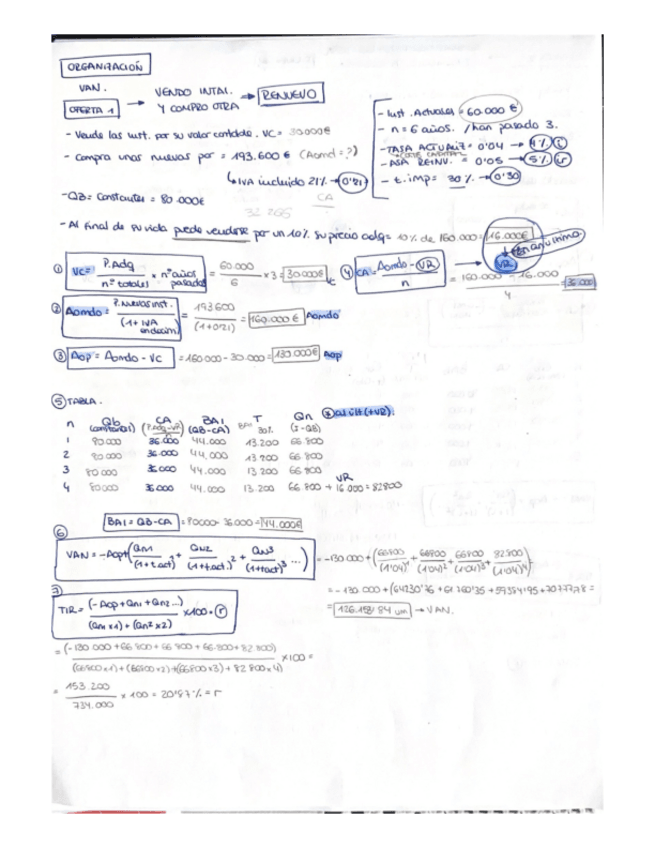 ORGANIZACIÓN
VAN.
OFERTA 1 → VENDO INTAL. Y COMPRO OTRA → RENUEVO
- Vendo las inst. por su valor contable. VC = 30000€
- Compra unas nuevas por = 193.600 € (Aomd = ?)
↳ IVA incluido 21% → 0'21
- QB = Constantes = 80.000€
CA
- Al final de su vida puede venderse por un 10% su precio adq = 10% de 160.000 = 16.000€
- Inst. Actuales = 60.000 €
- n = 6 años. / han pasado 3.
- TASA ACTUALIZ = 0'04 → 4%
- REINV. = 0'05 → 5% r
- t. imp = 30% → 0'30
VR
① VC = P.Adq / nº totales × nº años pasados = 60.000 / 6 × 3 = 30000€
④ CA = Aomdo - VR / n = 160.000 - 16.000 / 4 = 36.000
② Aomdo = P. Nuevas inst. / (1 + IVA = 193600 / (1+0'21) = 160.000 € Aomdo
③ Aop = Aomdo - VC = 160000 - 30.000 = 130.000€ Aop
⑤ TABLA.
n Qb (constantes) CA (P.Adq-VR) BAI (QB-CA) T 30% Qn
1 80000 36.000 44.000 13.200 66.800
2 80.000 36.000 44.000 13.200 66.800
3 80000 36.000 44.000 13.200 66.800
VR
4 80000 36000 44.000 13.200 66.800 + 16.000 = 82800
BAI = QB-CA = 80000 - 36000 = 44.000€
⑥
VAN = -Aop + (Qn1 / (1+t.act)¹ + Qn2 / (1+t.act.)² + Qn3 / (1+t.act)³ ...) = -130.000 + (66800 / (1'04)¹ + 66800 / (1'04)² + 66800 / (1'04)³ + 82800 / (1'04)⁴)
= -130.000 + (64230'76 +
= → VAN.
7
TIR = (-Aop + Qn1 + Qn2 ...) / (Qn1 x 1) + (Qn2 x 2) × 100 = r
= (-130.000 + 66800 + 66800 + 66.800 + 82.800) / (66800 x 1) + (66800 x 2) + (66800 x 3) + (82.800 x 4) x 100 =
= 153.200 / 734.000 x 100 = 20'87% = r